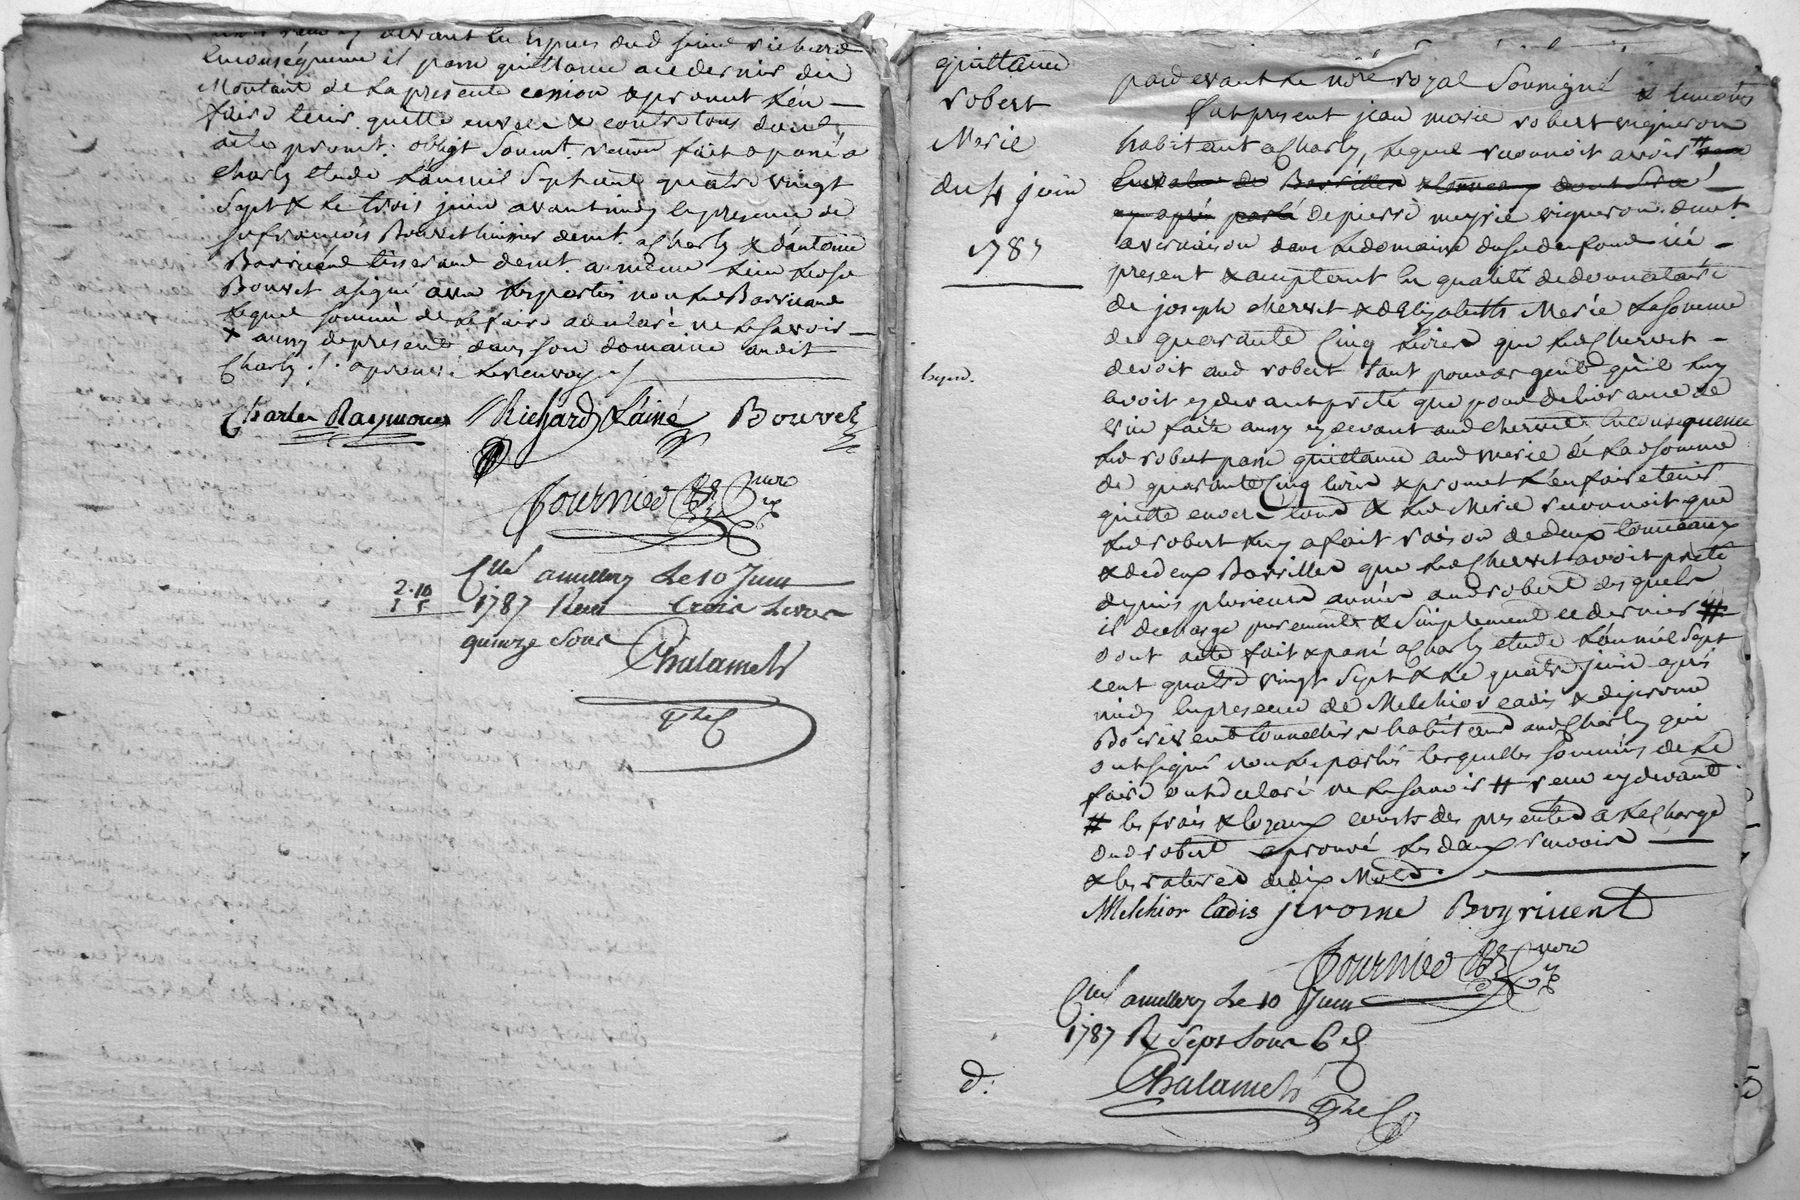 devant les espèces dud sieur richard
En conséquence il passe quittance a ce dernier du
Montant de la presente cession & promet l'en —
faire tenir quitte envers & contre tous dont
acte promt. obligt soumt. renon fait & passé a
Charly etude l'an mil sept cent quatre vingt
sept & le trois juin avant midy en presence de
sr françois Bouvet huissier demt. a Charly & d'antoine
tisserand demt. au même lieu led sr
Bouvet a signé avec les parties non led
lequel sommé de le faire a declaré ne le savoir —
& aussy de present dans son domaine audit
Charly ./. aprouvé le renvoy
Charles Raymond Richard L'ainé Bouvet
Fournier nore
Cllé a millery Le 10 Juin
2.10
1 5
1787 Reçu trois livres
quinze sous
Chalamel
quittance
robert
Merie
du 4 juin
1787
expéd.
pardevant le nre royal soussigné & temoins
fut present jean marie robert vigneron
habitant a Charly, lequel reconnoit avoir #
en valeur de Barrilles & tonneaux dont sera
cy après parlé de pierre meyrie vigneron demt.
a vernaison dans le domaine du sr ici —
present & acceptant en qualité de donnataire
de joseph chervet & d'Elizabeth Merie la somme
de quarante Cinq livres que led Chervet —
devoit aud robert tant pour argent qu'il luy
avoit cy devant prêté que pour delivrance de
vin faite aussy cy devant aud chervet En conséquence
led robert passe quittance aud merie de lad somme
de quarante Cinq livres & promet l'en faire tenir
quitte envers tous & led Merie reconnoit que
led robert luy a fait raison de deux tonneaux
& de deux Barrilles que led Chervet avoit prêté
depuis plusieurs années aud robert desquels
il decharge purement & simplement ce dernier #
dont acte fait & passé a Charly etude l'an mil sept
cent quatre vingt sept & le quatre juin après
midy en presence de Melchior cadis & de jerome
Boirivent tonnelliers habitans aud Charly qui
ont signé non les parties lesquelles sommées de le
faire ont declaré ne le savoir # receu cy devant
# les frais & loyaux couts des presentes a la charge
dud robert aprouvé les deux renvois —
& les ratures de dix Mots.
Melchior Cadis jerome Boyrivent
Fournier nore
Cllé a millery Le 10 Juin
1787 R sept sous 6 d
d: Chalamel